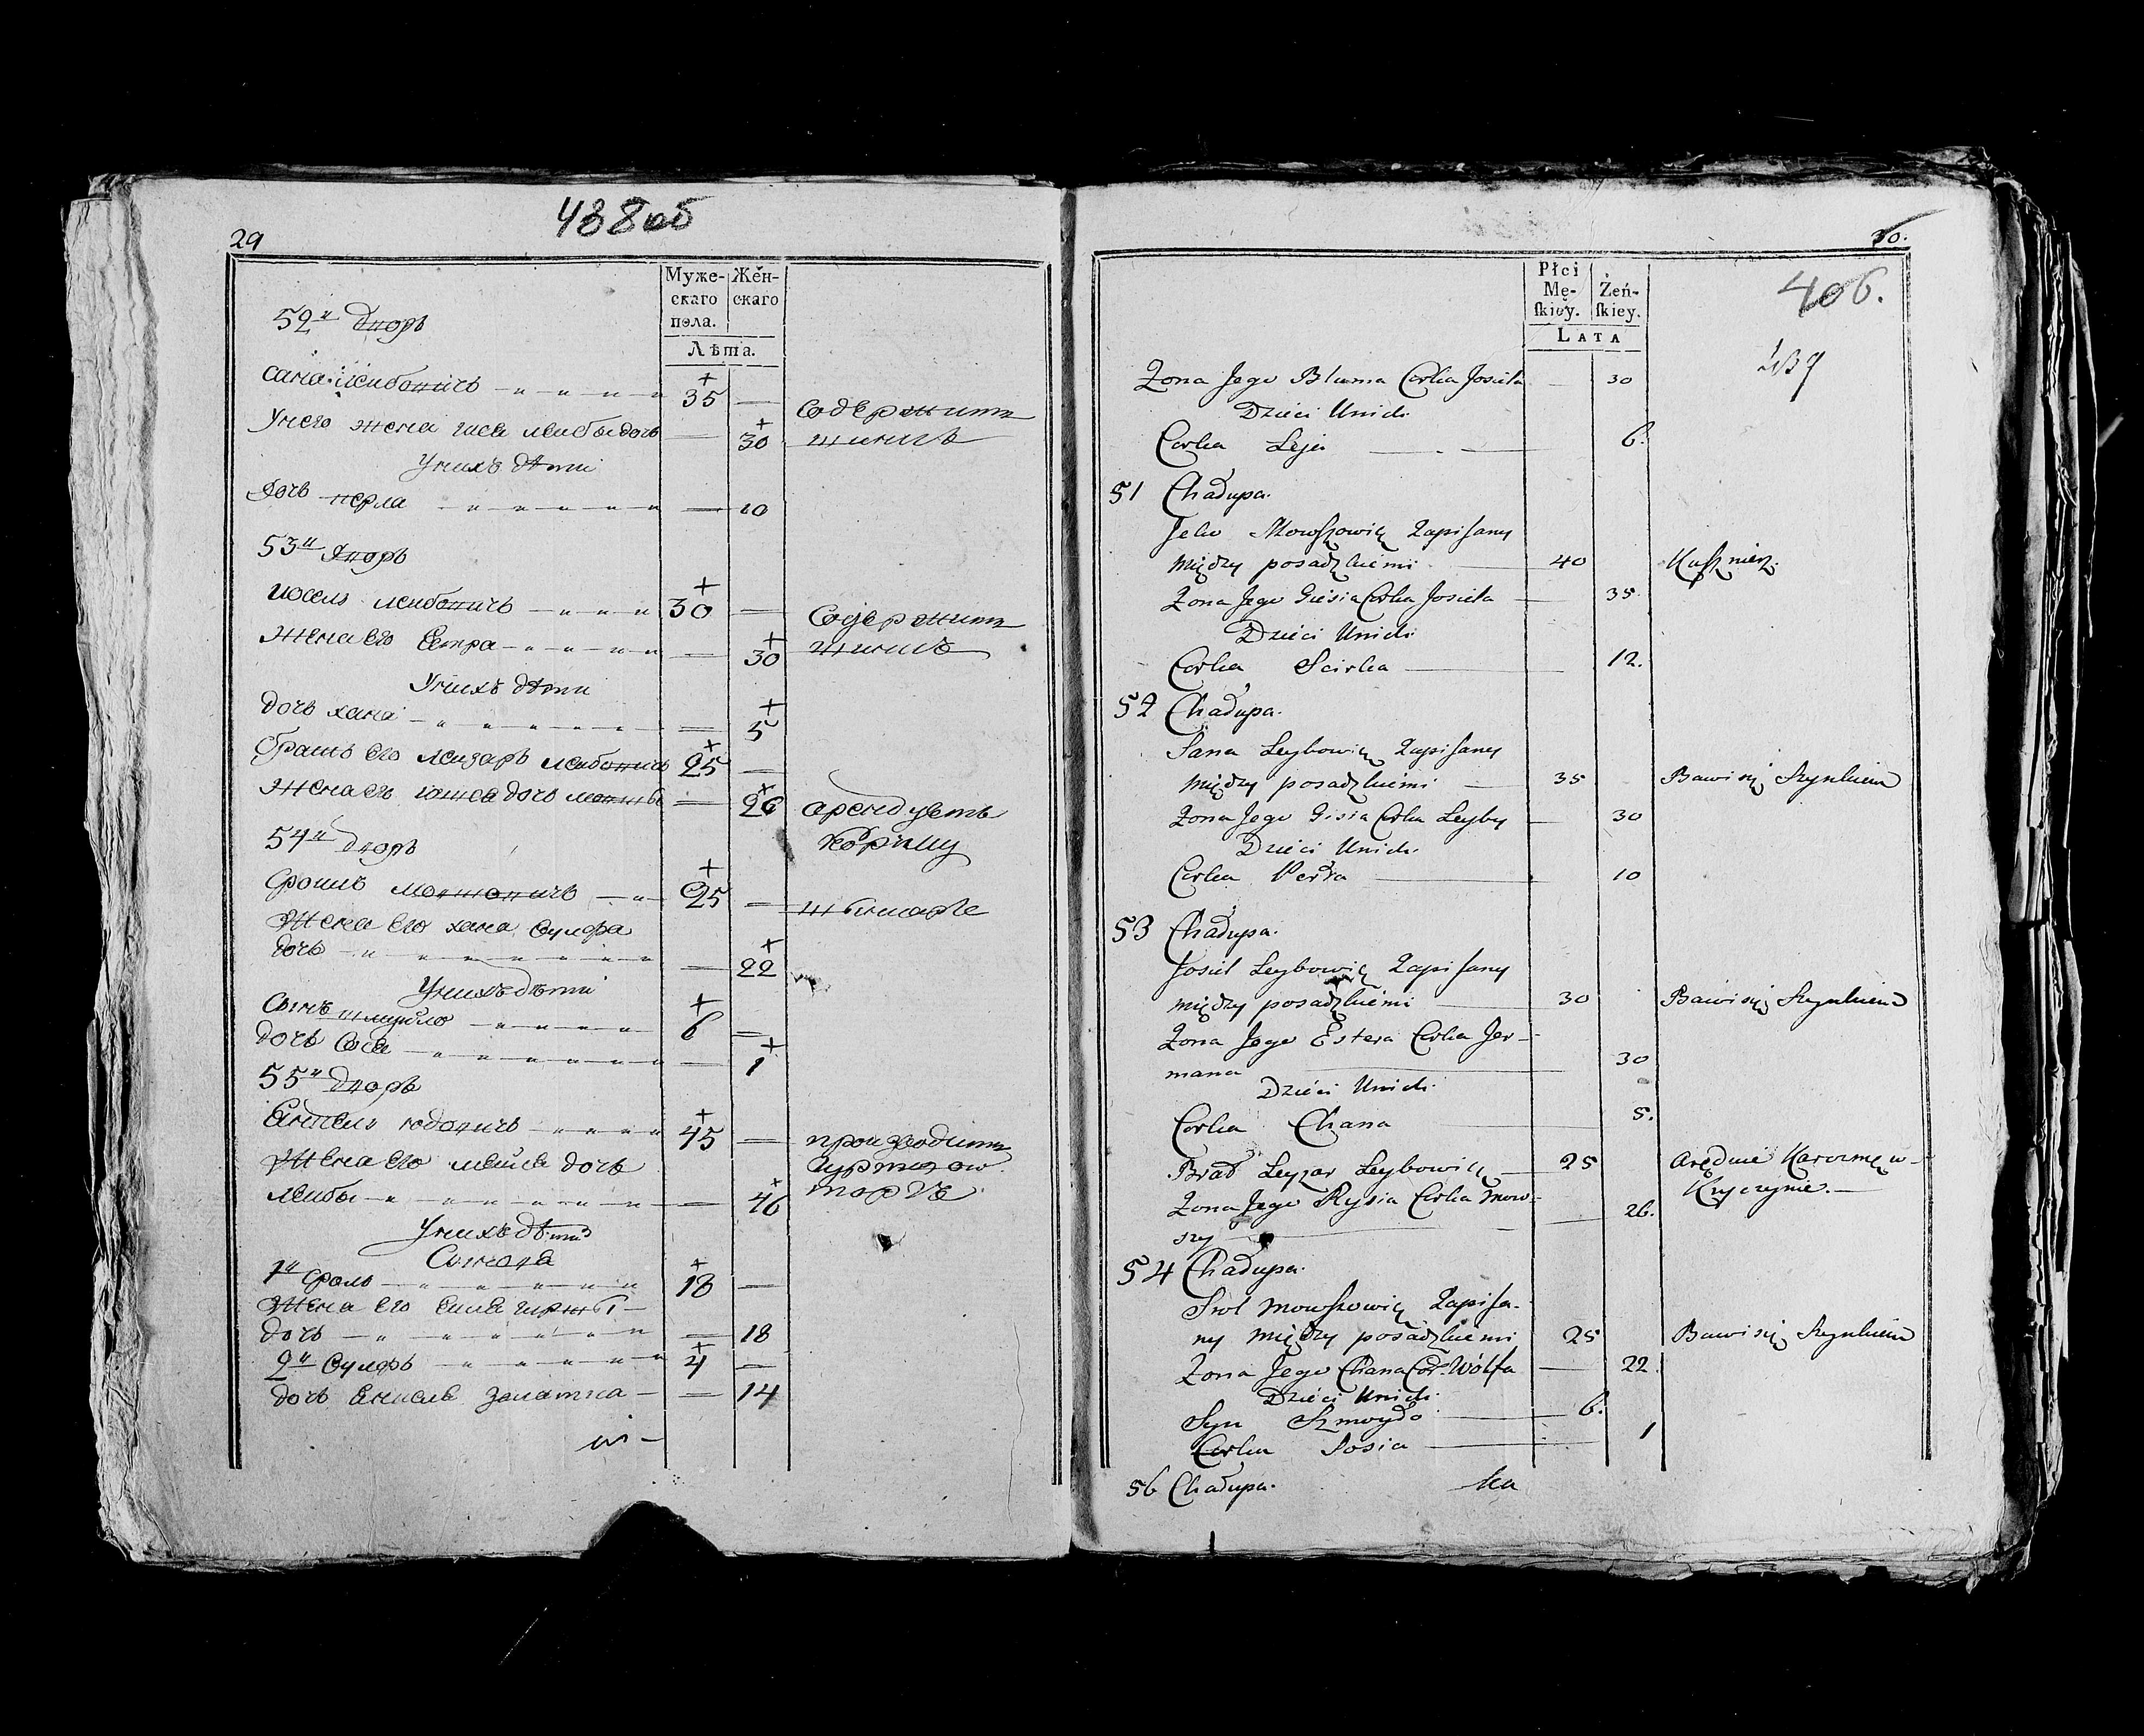 438об
29
Муже-
скаго
пола.
Жен-
скаго
Лѣта.
52й дворъ
сана лейбовичъ 35
Унего жена гися лейбы дочь 30
содержитъ
шинкъ
Унихъ дѣти
дочь перла 10
53й дворъ
иосель лейбовичъ 30
Содержитъ
шинкъ
Жена его Естра 30
Унихъ дѣти
дочь хана 5
братъ его лейзаръ лейбовичъ 25
Жена его дочь мовшы 26
арендуетъ
корчму
54й дворъ
сроль мовшовичъ 25
Жена его хана вульфа
дочь 22
Унихъ дѣти
Сынъ шмуйло 6
дочь Сося 1
55й дворъ
юдовичъ 45
производитъ
Жена его дочь
лейбы 46
торгъ
Унихъ дѣти
Сыновья
1й сроль 18
Жена его
дочь 18
2й вульфъ 4
дочь 14
30.
406.
Płci
Mę-
skiey.
Żeń-
skiey.
LATA
Zona Jego Bluma Corka Josiela 30
Dzieci Unich
Corka Leja 6.
51 Chadupa.
Jelw Mowszowicz Zapisany
między posadzkiemi 40 Kusznierz.
Zona Jego Giesia Corka Josiela 35.
Dzieci Unich
Corka Scirka 12.
52 Chadupa.
Sana Leybowicz Zapisany
między posadzkiemi 35 Bawi się Szynkiem
Zona Jego Gisia Corka Leyby 30
Dzieci Unich
Corka Perła 10
53 Chadupa.
Josiel Leybowicz Zapisany
między posadzkiemi 30 Bawi się Szynkiem
Zona Jego Estera Corka Jer-
mana 30
Dzieci Unich.
Corka Chana 5.
Brat Leyzar Leybowicz 25 Aręduie Karczmę w
Zona Jego Rysia Corka Mow-
szy 26.
54 Chadupa.
Srol Mowszowicz Zapisa-
ny między posadzkiemi 25 Bawi się Szynkiem
Zona Jego Chana Cor. Wólfa 22.
Dzieci Unich.
Syn Szmoydo 6.
Corka Sosia 1
56 Chadupa.